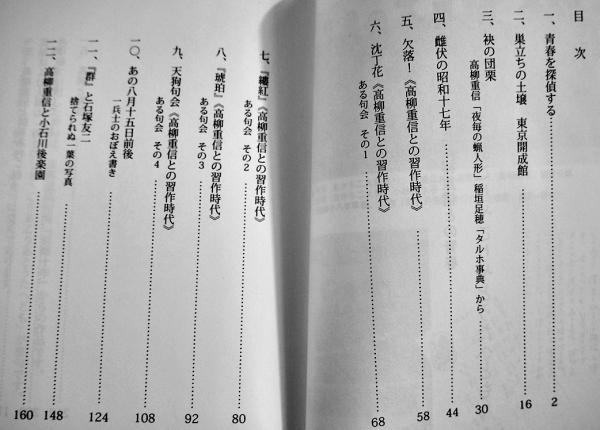 目次
一、青春を探偵する……………2
二、巣立ちの土壌　東京開成館……………16
三、袂の団栗
高柳重信「夜毎の蝋人形」稲垣足穂「タルホ事典」から……………30
四、雌伏の昭和十七年……………44
五、欠落！《高柳重信との習作時代》……………58
六、沈丁花《高柳重信との習作時代》
ある句会　その1……………68
七、『縷紅』《高柳重信との習作時代》
ある句会　その2……………80
八、『琥珀』《高柳重信との習作時代》
ある句会　その3……………92
九、天狗句会《高柳重信との習作時代》
ある句会　その4……………108
一〇、あの八月十五日前後
一兵士のおぼえ書き……………124
一一、『群』と石塚友二
捨てられぬ一葉の写真……………148
一二、高柳重信と小石川後楽園……………160